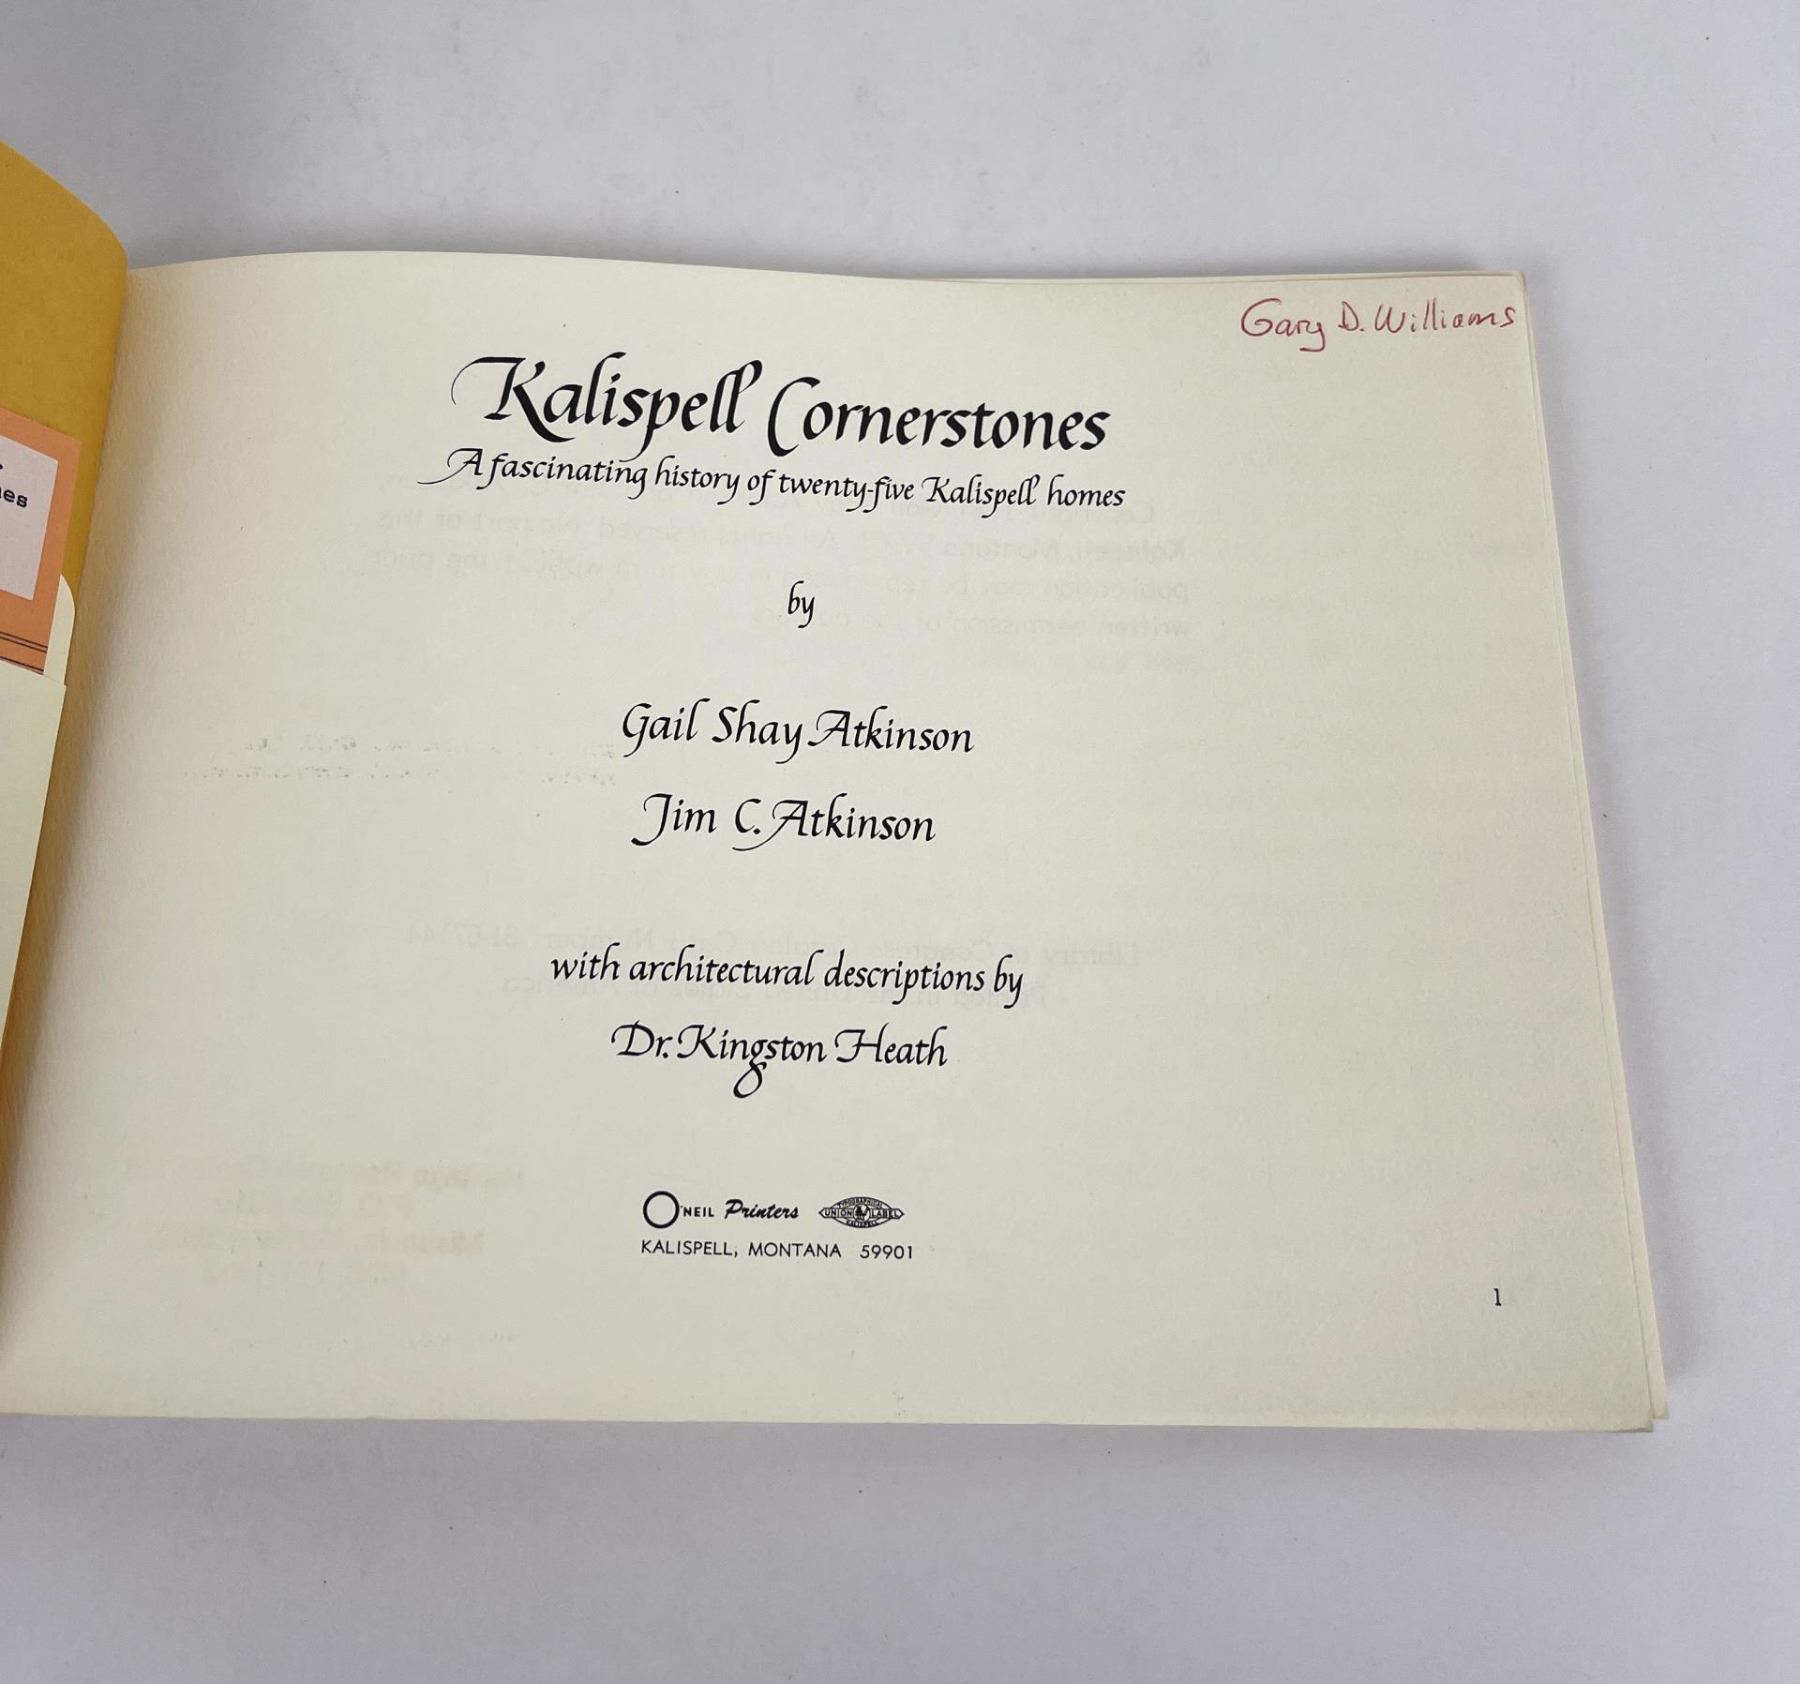 Gary D. Williams
Kalispell Cornerstones
A fascinating history of twenty-five Kalispell homes
by
Gail Shay Atkinson
Jim C. Atkinson
with architectural descriptions by
Dr. Kingston Heath
O'NEIL Printers
TYPOGRAPHICAL
UNION LABEL
KALISPELL
KALISPELL, MONTANA 59901
1